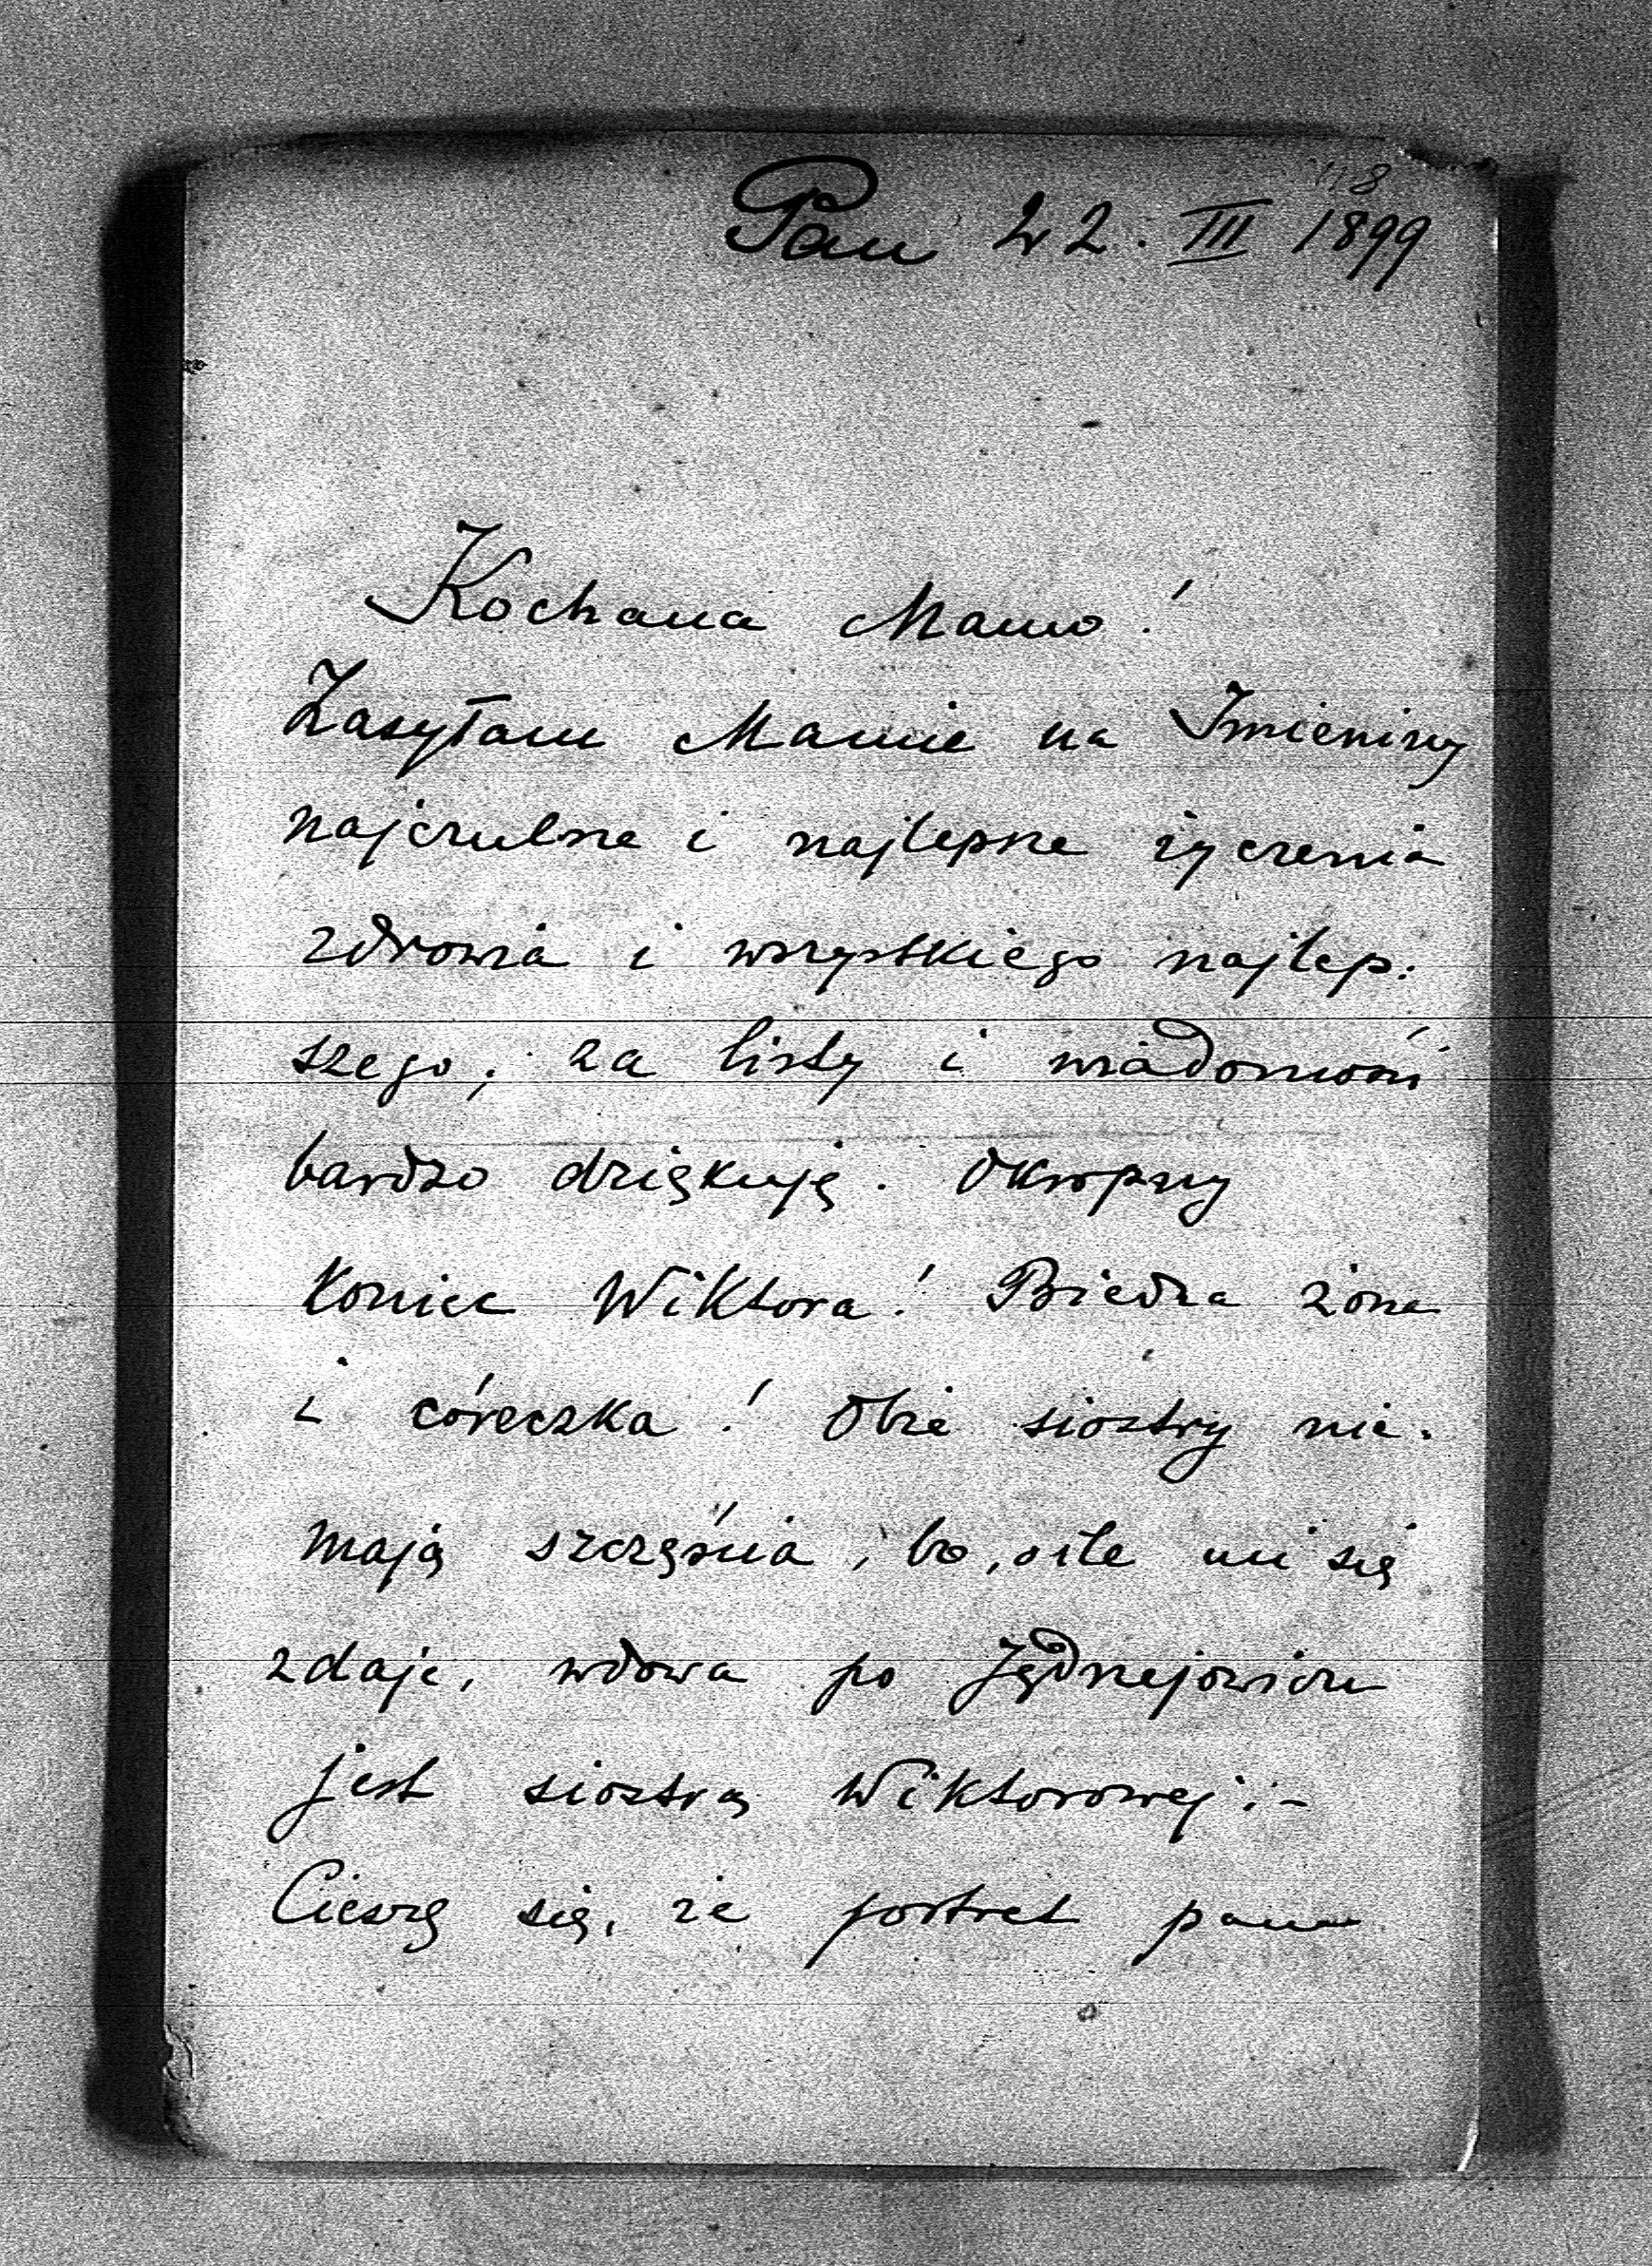 118
Pau 22. III 1899
Kochana Mamo!
Zasyłam Mamie na Imieniny
najczulsze i najlepsze życzenia
zdrowia i wszystkiego najlep-
szego; za listy i wiadomości
bardzo dziękuję. Okropny
koniec Wiktora! Biedna żona
i córeczka! Obie siostry nie
mają szczęścia, bo, o ile mi się
zdaje, wdowa po Jędrzejowiczu
jest siostrą Wiktorowej; -
Cieszę się, że portret pana